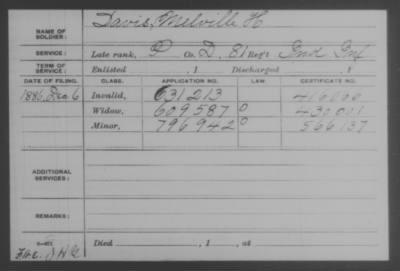 NAME OF SOLDIER: Davis, Melville H
SERVICE: Late rank, P Co. D, 81 Reg't Ind Inf
TERM OF SERVICE: Enlisted , 1 Discharged , 1
DATE OF FILING. CLASS. APPLICATION NO. LAW. CERTIFICATE NO.
Dec 6 Invalid, 631213
Widow, 609587 0 430001
Minor, 796942 0 566137
ADDITIONAL SERVICES:
REMARKS:
Died , 1 , at